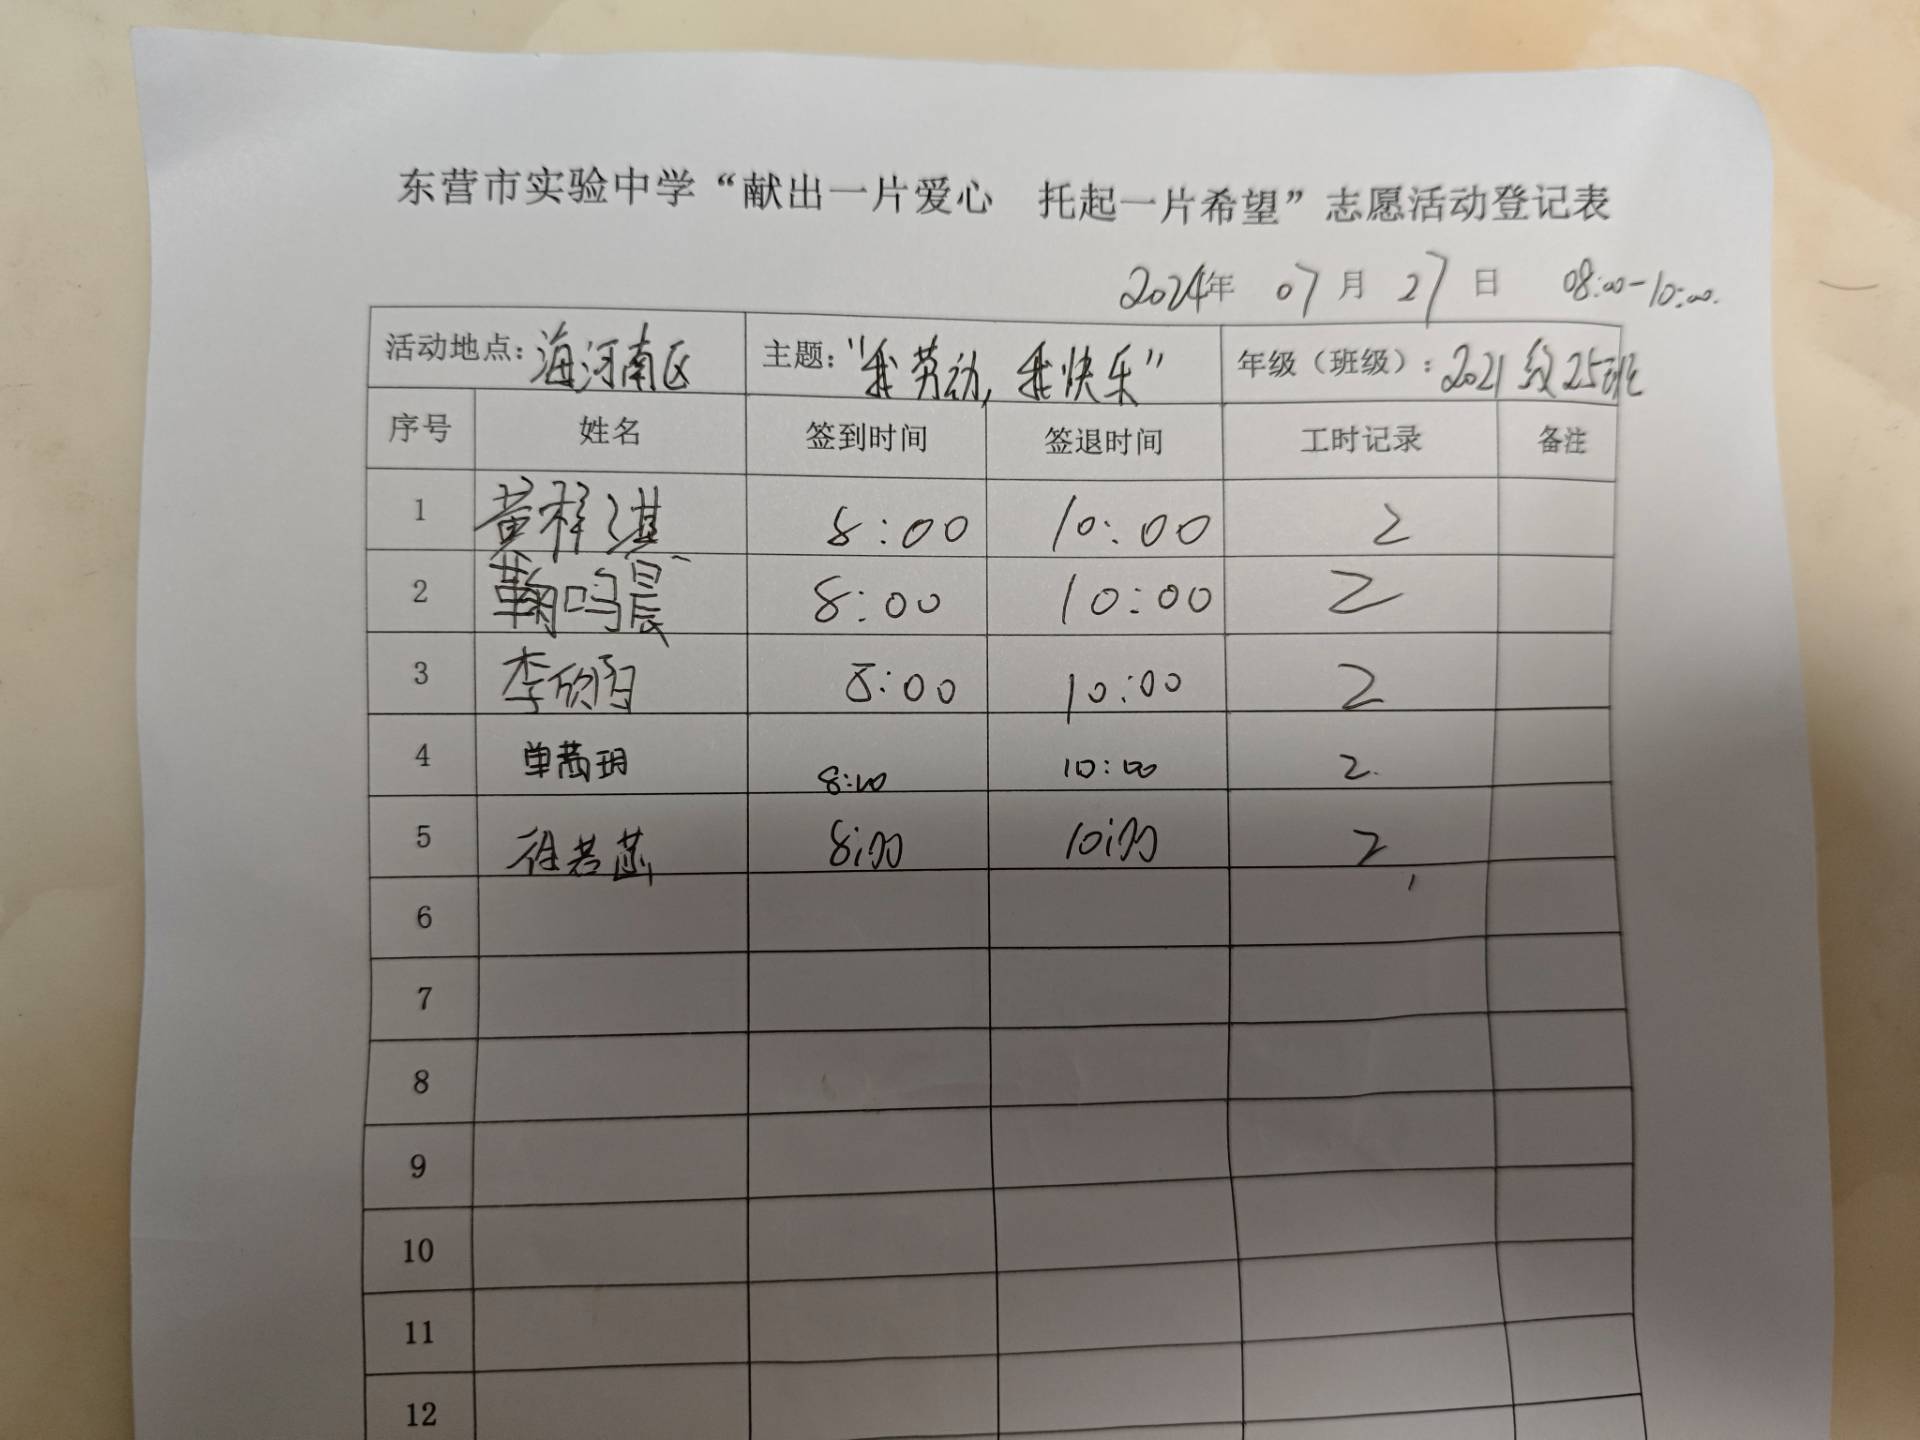 东营市实验中学“献出一片爱心 托起一片希望”志愿活动登记表
2024年 07月 27日 08:00-10:00.
活动地点：海河南区 主题：“我劳动，我快乐” 年级（班级）：2021级25班
序号 姓名 签到时间 签退时间 工时记录 备注
1 黄梓淇 8:00 10:00 2
2 鞠鸣晨 8:00 10:00 2
3 李欣 8:00 10:00 2
4 单茜玥 8:00 10:00 2.
5 徐若菡 8:00 10:00 2
6
7
8
9
10
11
12